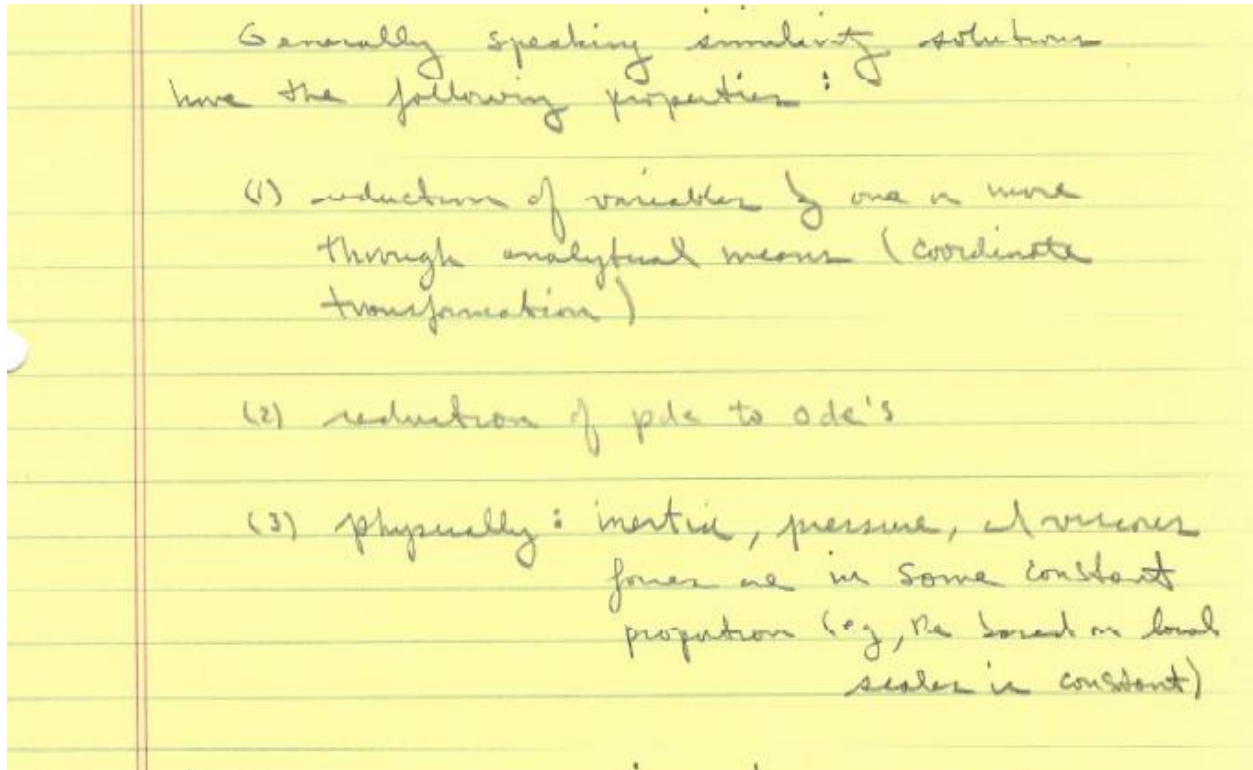 Generally speaking similarity solutions
have the following properties:
(1) reduction of variables by one or more
through analytical means (coordinate
transformation)
(2) reduction of pde to ode's
(3) physically: inertia, pressure, and viscous
forces are in some constant
proportion (eg, Re based on local
scales is constant)